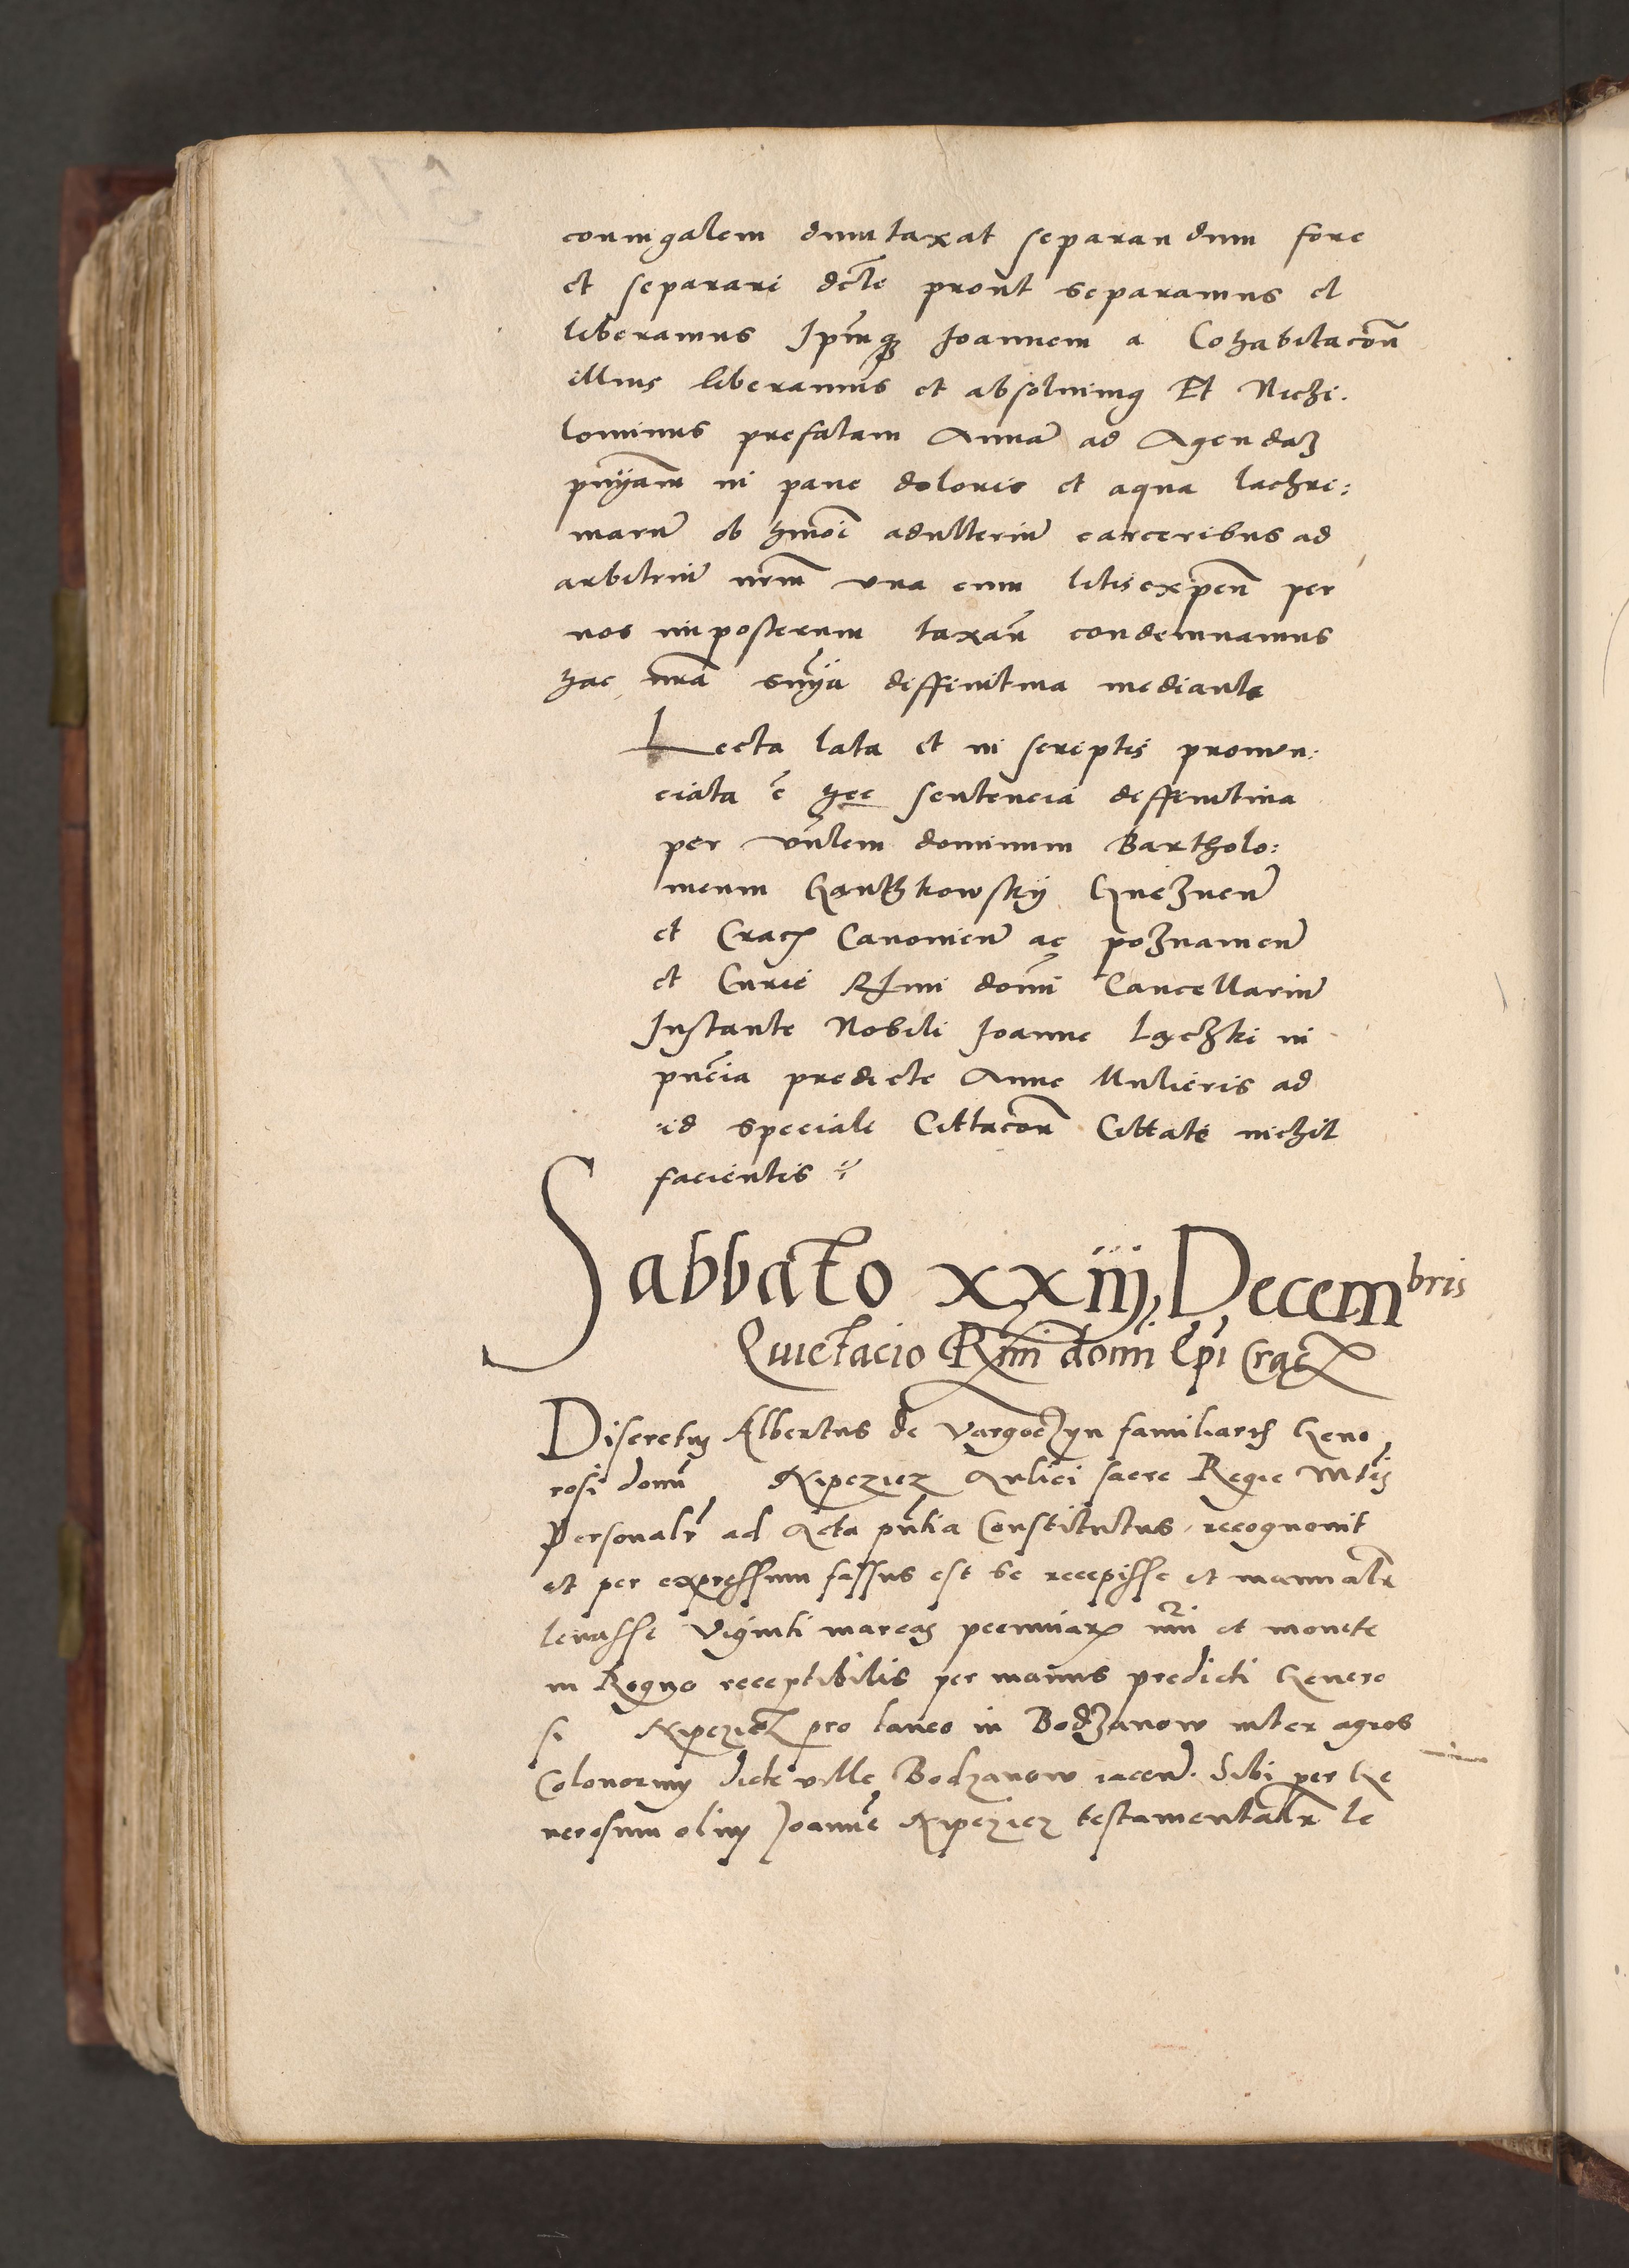 coniugalem dumtaxat separandum fore
et separari debere prout separamus et
liberamus Ipmq Joannem a Cohabitacon
illius liberamus et absoluimus Et Nichi.
lominus prefatam Annã ad Agendaz
pnijam in pane doloris et aqua lachri:
marũ ob hmoi adulteriũ carceribus ad
arbitriũ nrm vna cum litis expen per
nos imposterum taxan condemnamus
hac nra snÿa diffinitiua mediante
Lecta lata et in scriptis pronun:
ciata ẽ hec sentencia diffinitiua
per Vnlem dominum Bartholo:
meum Gantkowskÿ Gneznen
et Crac Canonicũ ac poznamen
et Curie Rmi domi Cancellariũ
Instante Nobili Joanne Lączki in
pncia predicte Anne Mulieris ad
id speciale Cittacon Cittate nichil
facientis
Sabbato xxiij Decembris
Quietacio Rmi domi Epi Crac
Discretus Albertus de Vargoczyn familiaris Gene
rosi domi Xipeziez Aulici sacre Regie Mtis
Personalr ad Acta pntia Constitutus recognouit
et per expressum fassus est se recepisse et manualr
leuasse Viginti marcas pecuniar nri et monete
in Regno receptibilis per manus predicti Genero
si Xipeziez pro laneo in Bodzanow inter agros
Colonorum dicte ville Bodzanow iacen. Sibi per Ge
nerosum olim Joannẽ Xipeziez testamentalr le